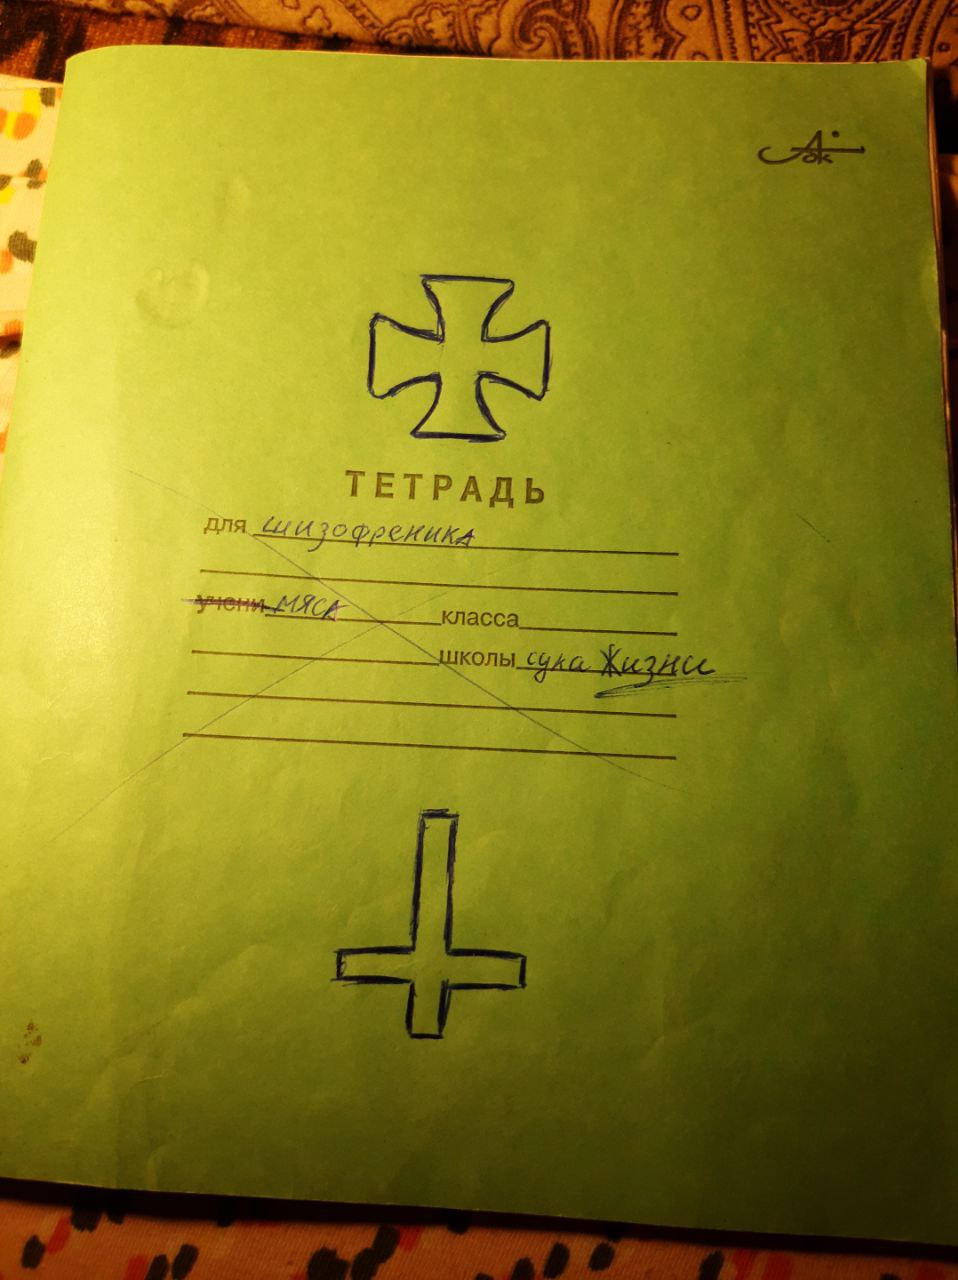 Аjok
ТЕТРАДЬ
для шизофреника
учени мяса класса
школы сука Жизни